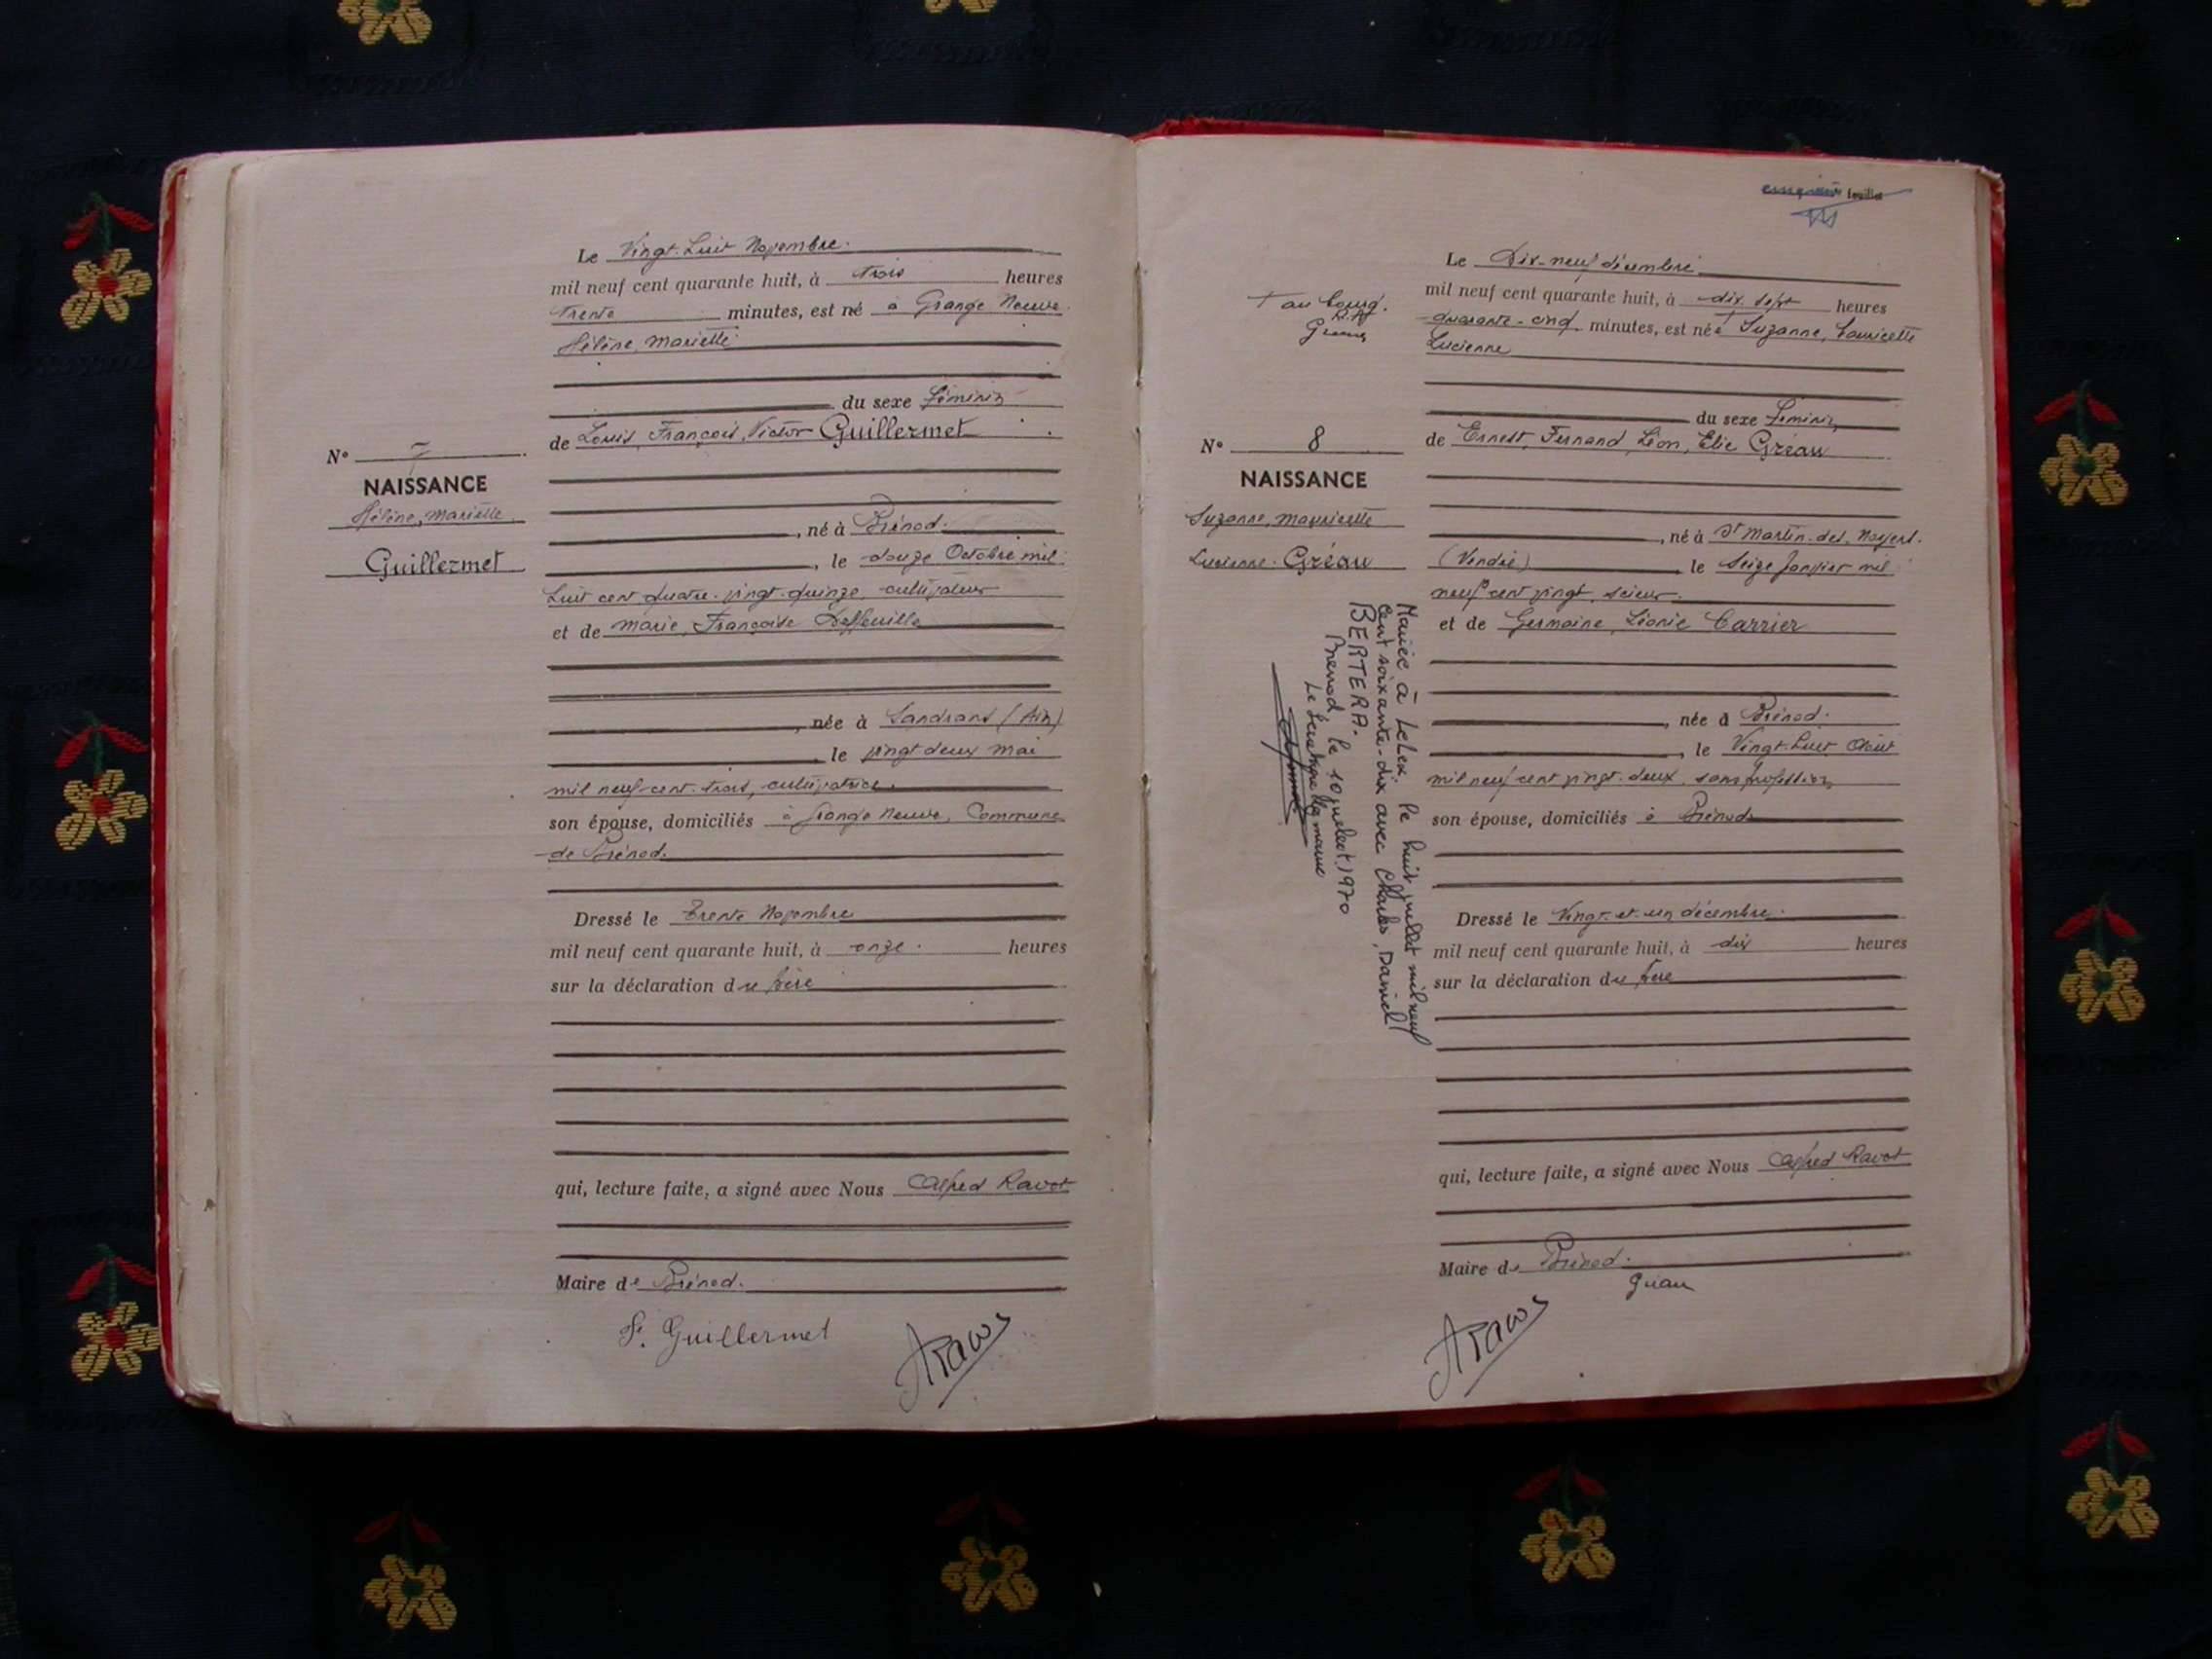 Le Vingt-huit Novembre.
mil neuf cent quarante huit, à trois heures
trente minutes, est né à Grange Neuve
Hélène, Marielle
du sexe féminin
de Louis, François, Victor Guillermet
N° 7
NAISSANCE
Hélène, Marielle
Guillermet
, né à Brénod.
, le douze Octobre mil
huit cent quatre-vingt-quinze, cultivateur
et de Marie, Françoise
, née à Sandrans (Ain)
, le vingt deux mai
mil neuf cent trois, cultivatrice.
son épouse, domiciliés à Grange Neuve, Commune
de Brénod.
Dressé le trente Novembre
mil neuf cent quarante huit, à onze. heures
sur la déclaration du père
qui, lecture faite, a signé avec Nous Alfred Ravot
Maire de Brénod.
Guillermet
feuillet
Le Dix-neuf décembre
mil neuf cent quarante huit, à dix sept heures
quarante-cinq minutes, est née Suzanne, Mauricette
Lucienne
du sexe féminin
de Ernest, Fernand, Léon, Elie Gréau
N° 8
NAISSANCE
Suzanne, Mauricette
Lucienne. Gréau
, né à St Martin-des-Noyers.
(Vendée) le seize Janvier mil
neuf cent vingt, scieur.
et de Germaine, Léonie Carrier
, née à Brénod.
, le Vingt-huit Août
mil neuf cent vingt-deux, sans profession
son épouse, domiciliés à Brénod
Dressé le Vingt-et-un décembre.
mil neuf cent quarante huit, à dix heures
sur la déclaration du père
qui, lecture faite, a signé avec Nous Alfred Ravot
Maire de Brénod.
Gréau
Mariée à Lelex, le huit juillet mil neuf
cent soixante-dix avec Charles, Daniel
BERTERA.
Brenod, le 10 juillet 1970
Le Secrétaire de mairie